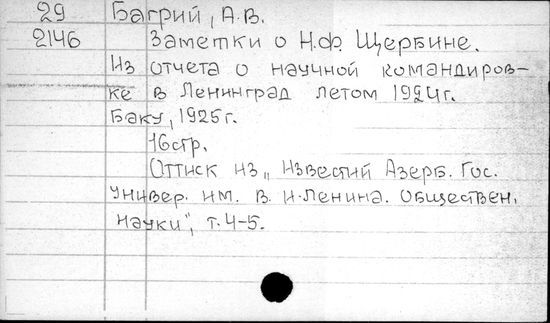 29 Багрий, А.В.
2146 Заметки о Н.Ф. Щербине.
Из отчета о научной командиров-
ке в Ленинград летом 1924г.
Баку, 1925г.
16стр.
Оттиск из „Известий Азерб. Гос.
Универ. им. В. И. Ленина. Обществен.
науки", т. 4-5.